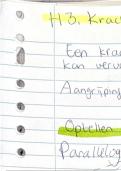 H3. Krac
Een kra
kan vervo
Aangrijping
Optellen
Parallelog